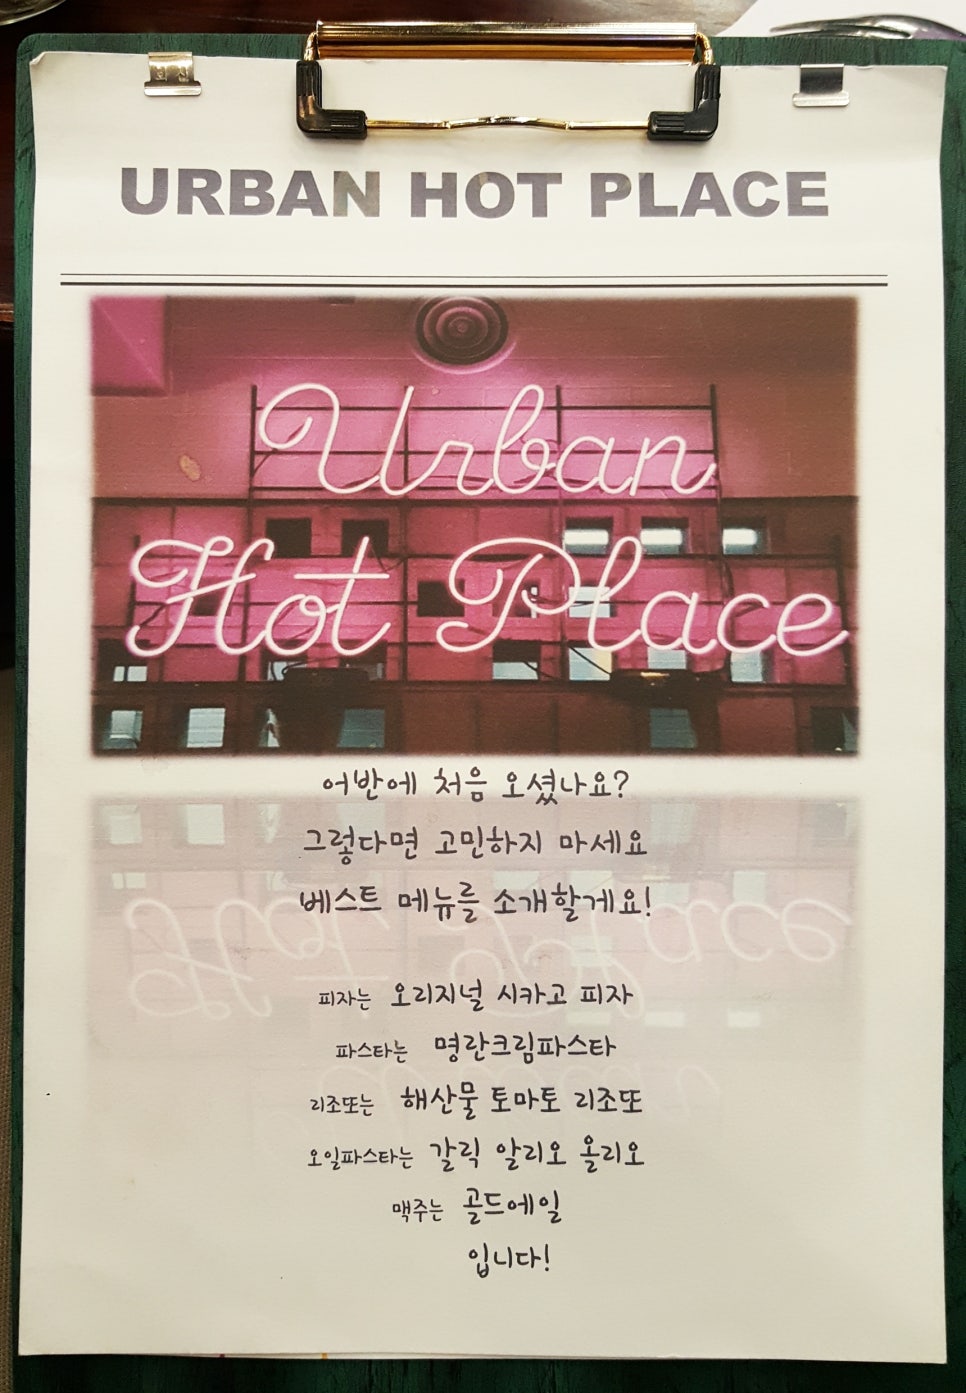 URBAN HOT PLACE
Urban
Hot Place
어반에 처음 오셨나요?
그렇다면 고민하지 마세요
베스트 메뉴를 소개할게요!
피자는 오리지널 시카고 피자
파스타는 명란크림파스타
리조또는 해산물 토마토 리조또
오일파스타는 갈릭 알리오 올리오
맥주는 골드에일
입니다!